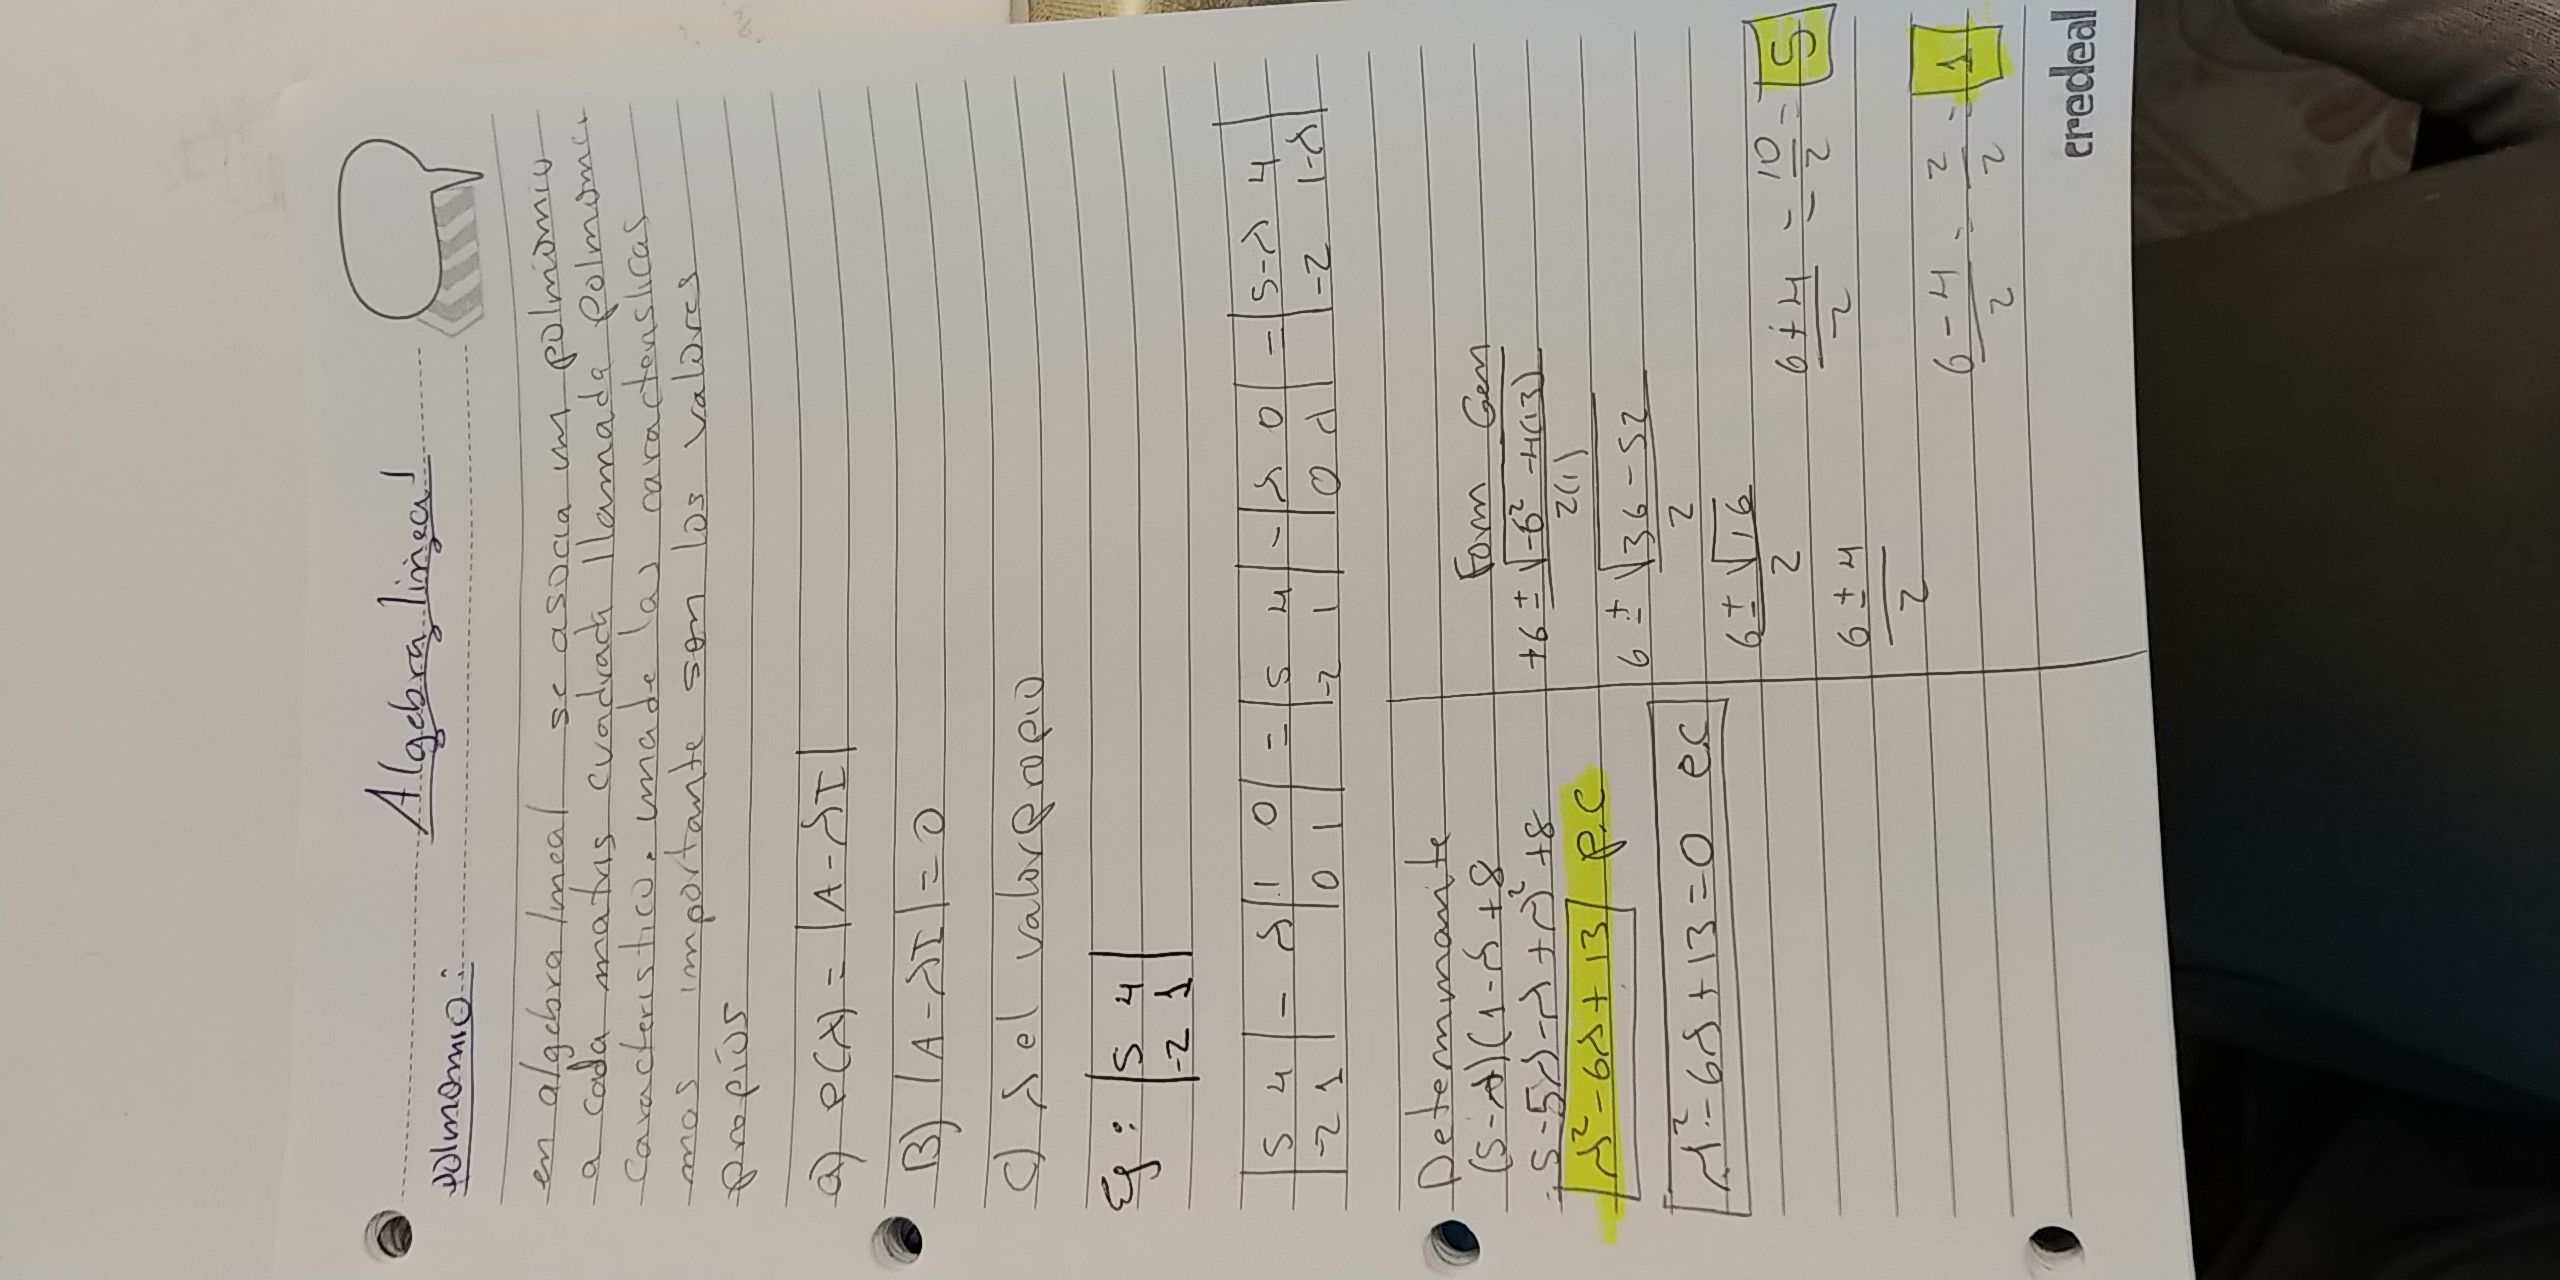 Algebra lineal
polinomio:
en algebra lineal se asocia un polinomio
a cada matris cuadrada llamada Polinomio
Caracteristico. una de las caracteristicas
mas importante son los valores
propios
a) P(λ) = |A-λI|
B) |A-λI| = 0
C) λ el valor propio
Ej: |5 4|
|-2 1|
|5 4| - λ|1 0| = |5 4| - |λ 0| = |5-λ 4|
|-2 1| |0 1| |-2 1| |0 λ| |-2 1-λ|
Determinante
(5-λ)(1-λ +8
5-5λ-λ+λ² +8
λ²-6λ+13 p.c
λ²-6λ+13=0 ec
Form Gen
+6 ± √-6² -4(13)
2(1)
6 ± √36-52
2
6 ± √16
2
6 ± 4
2
6+4 = 10 = 5
2 2
6-4 = 2 = 1
2 2
credeal